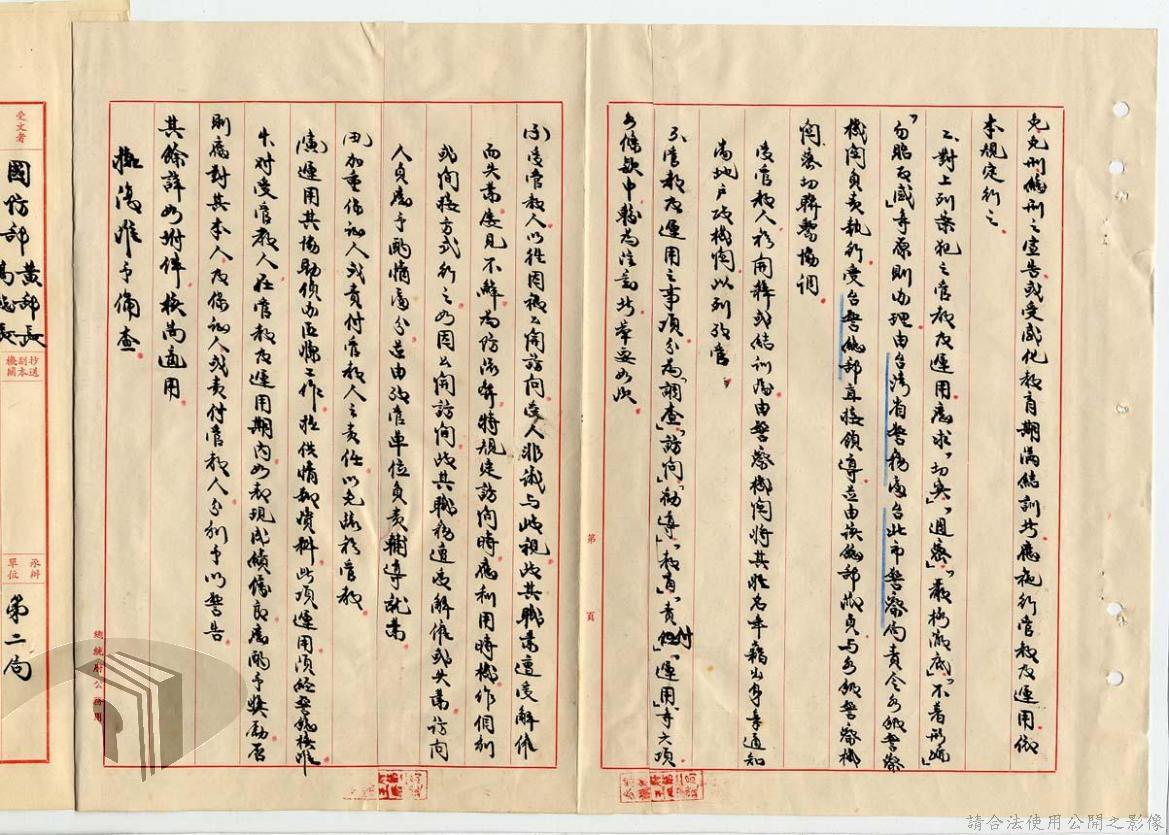 免免刑緩刑之宣告或受感化教育期滿結訓者應施行管教及運用依
本規定行之
二、對上列案犯之管教及運用應求「切實」「週密」「嚴格澈底」「不着形跡」
「勿貽反感」等原則辦理由台灣省警務處台北市警察局責令各級警察
機關負責執行受台警總部直接領導並由該總部派員與各級警察機
關密切聯繫協調
受管教人於開釋或結訓後由警察機關將其姓名年籍出身等通知
當地戶政機關以列考管
三、管教及運用之事項分為「調查」「訪問」「勸導」「教育」「責付」「運用」等六項
各條款中轄為注意者舉要如次
受管教人以往因被公開訪問後人非議與歧視或其職業遭受解雇
而失業屢見不鮮為防流弊特規定訪問時應利用時機作個別
或間接方式行之如因公開訪問使其職務遭受解雇或失業訪問
人員應予酌情處分並由考管單位負責輔導就業
加重保證人或責付管教人之責任以免疏於管教
運用其協助偵辦匪嫌工作提供情報資料此項運用須經警總核准
受管教人在管教及運用期內如表現成績優良應酌予獎勵否
則應對其本人及保證人或責付管教人分別予以警告
其餘詳如附件核尚適用
擬復准予備查
第 頁
總統府公務用
受文者
國防部 黃部長
抄送副本機關
承辦單位
第二局
請合法使用公開之影像